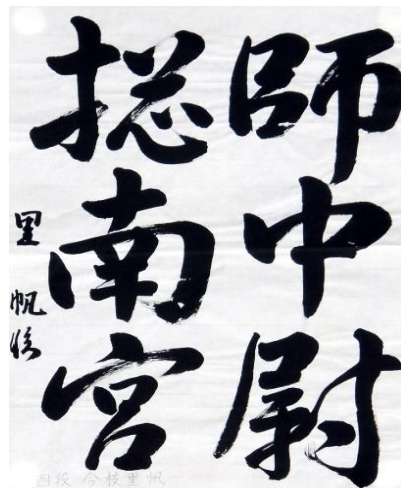 師中尉
捴南宮
里帆臨
四段 今枝里帆